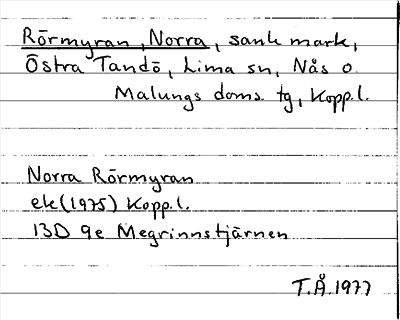 Rörmyran, Norra, sank mark,
Östra Tandö, Lima sn, Nås o
Malungs doms. tg, Kopp.l.
Norra Rörmyran
ek(1975) Kopp.l.
13D 9e Megrinnstjärnen
T.Å.1977